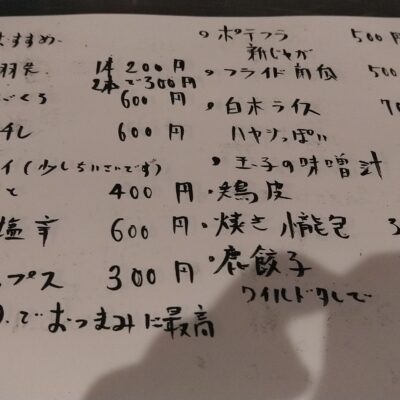 おすすめ
羽 1本 200円
2本で300円
ごくろ 600円
刺し 600円
イ(少しちいさいです)
と 400円
塩辛 600円
ップス 300円
で おつまみに最高
・ポテフラ 500円
新じゃが
・フライド南瓜 500
・白木ライス 70
ハヤシっぽい
・玉子の味噌汁
・鶏皮
・焼き小龍包 3
・鹿餃子
ワイルドタレで